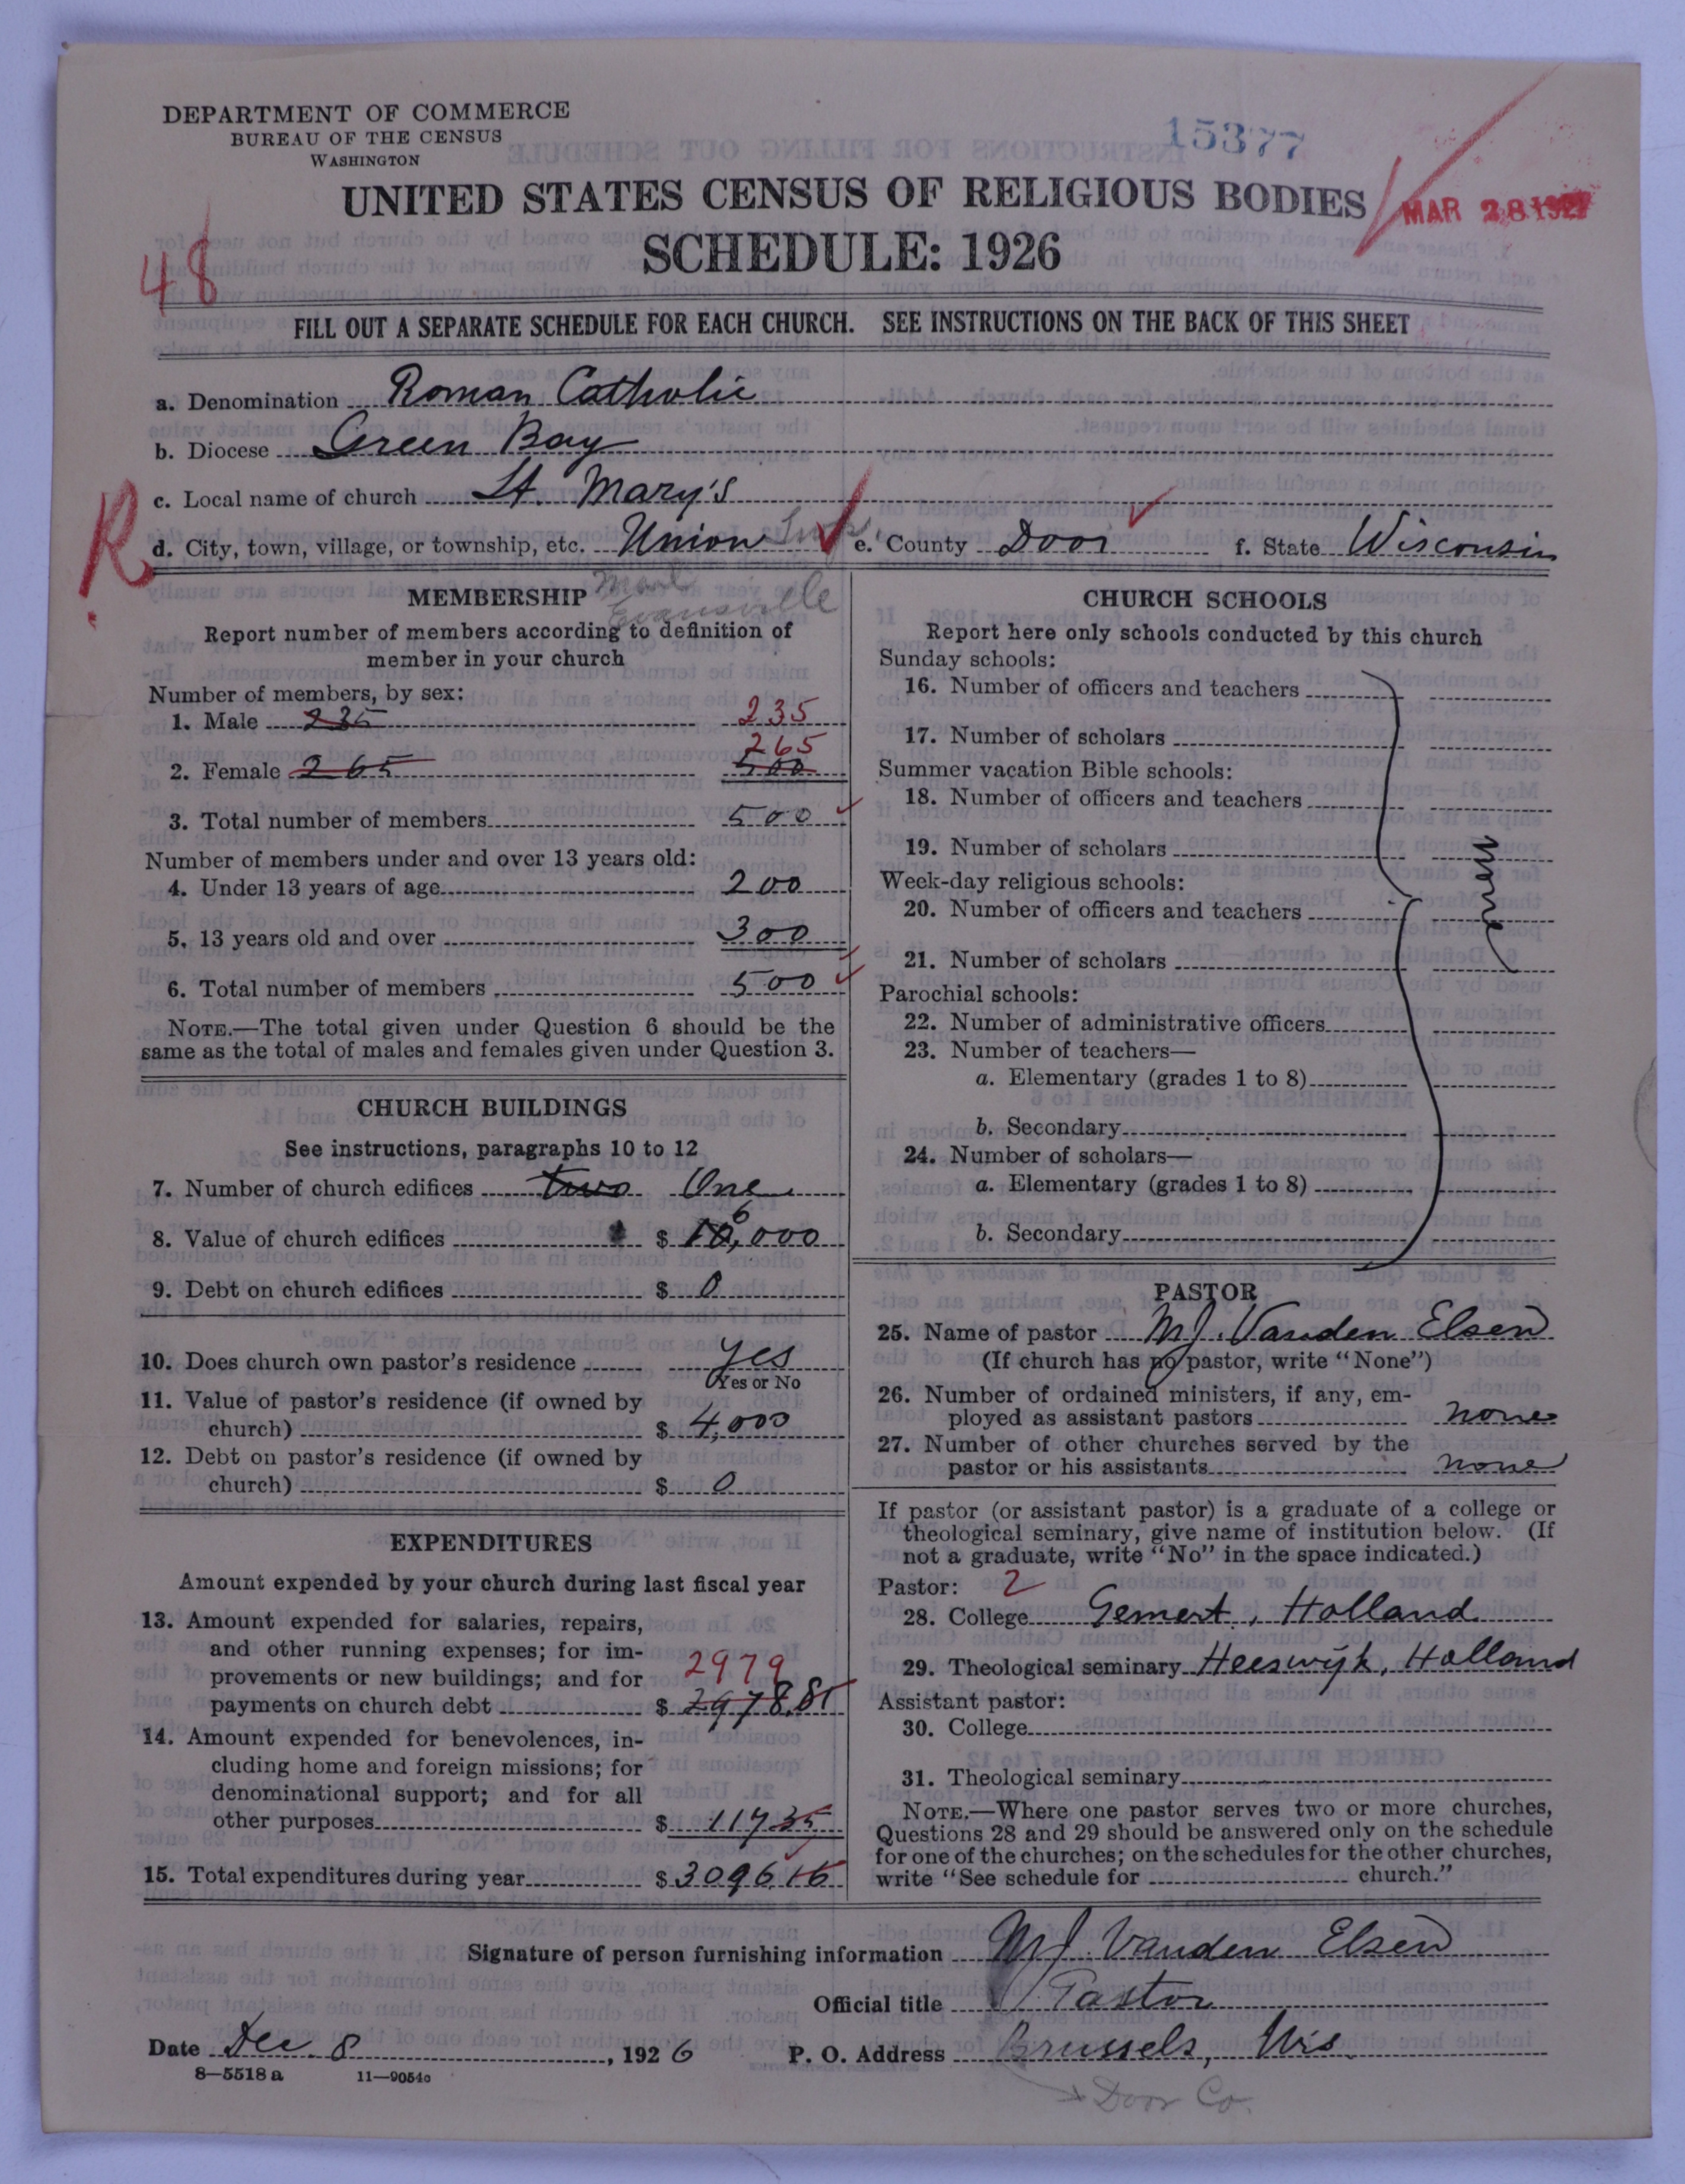 DEPARTMENT OF COMMERCE
BUREAU OF THE CENSUS
WASHINGTON
15377
UNITED STATES CENSUS OF RELIGIOUS BODIES
MAR 28 1927
SCHEDULE: 1926
48
FILL OUT A SEPARATE SCHEDULE FOR EACH CHURCH. SEE INSTRUCTIONS ON THE BACK OF THIS SHEET
a. Denomination Roman Catholic
b. Diocese Green Bay
c. Local name of church St. Mary's
R
d. City, town, village, or township, etc. Union e. County Door f. State Wisconsin
MEMBERSHIP
Evansville
Report number of members according to definition of
member in your church
Number of members, by sex:
1. Male 235 235
265
2. Female 265 500
3. Total number of members 500
Number of members under and over 13 years old:
4. Under 13 years of age 200
5. 13 years old and over 300
6. Total number of members 500
NOTE.—The total given under Question 6 should be the
same as the total of males and females given under Question 3.
CHURCH BUILDINGS
See instructions, paragraphs 10 to 12
7. Number of church edifices two One
8. Value of church edifices $ 16,000
9. Debt on church edifices $ 0
10. Does church own pastor's residence yes
Yes or No
11. Value of pastor's residence (if owned by
church) $ 4,000
12. Debt on pastor's residence (if owned by
church) $ 0
EXPENDITURES
Amount expended by your church during last fiscal year
13. Amount expended for salaries, repairs,
and other running expenses; for im-
provements or new buildings; and for 2979
payments on church debt $ 2978.81
14. Amount expended for benevolences, in-
cluding home and foreign missions; for
denominational support; and for all
other purposes $ 117 35
15. Total expenditures during year $ 3096 16
CHURCH SCHOOLS
Report here only schools conducted by this church
Sunday schools:
16. Number of officers and teachers
17. Number of scholars
Summer vacation Bible schools:
18. Number of officers and teachers
19. Number of scholars
none
Week-day religious schools:
20. Number of officers and teachers
21. Number of scholars
Parochial schools:
22. Number of administrative officers
23. Number of teachers—
a. Elementary (grades 1 to 8)
b. Secondary
24. Number of scholars—
a. Elementary (grades 1 to 8)
b. Secondary
PASTOR
25. Name of pastor M.J. Vanden Elsen
(If church has no pastor, write "None")
26. Number of ordained ministers, if any, em-
ployed as assistant pastors none
27. Number of other churches served by the
pastor or his assistants none
If pastor (or assistant pastor) is a graduate of a college or
theological seminary, give name of institution below. (If
not a graduate, write "No" in the space indicated.)
Pastor: 2
28. College Gemert, Holland
29. Theological seminary Heeswyk, Holland
Assistant pastor:
30. College
31. Theological seminary
NOTE.—Where one pastor serves two or more churches,
Questions 28 and 29 should be answered only on the schedule
for one of the churches; on the schedules for the other churches,
write "See schedule for church."
Signature of person furnishing information M.J. Vanden Elsen
Official title Pastor
Date Dec. 8, 1926 P. O. Address Brussels, Wis.
8—5518 a 11—9054c
Door Co.